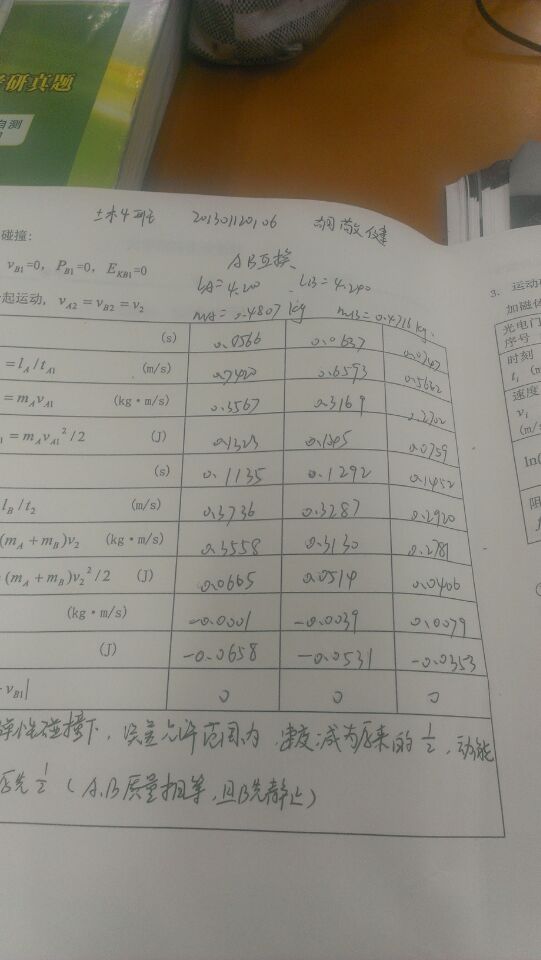 研真题
自测
土木4班 201301120106 胡敬健
碰撞:
v_{B1}=0, P_{B1}=0, E_{KB1}=0
AB互换
一起运动, v_{A2}=v_{B2}=v_2
l_A=4.200 l_B=4.240
m_A=0.4807 kg m_B=0.4716 kg.
(s) 0.0566 0.0637
=l_A/t_{A1} (m/s) 0.7420 0.6593
=m_A v_{A1} (kg·m/s) 0.3567 0.3169
=m_A v_{A1}²/2 (J) 0.1323 0.1045 0.0759
(s) 0.1135 0.1292 0.1452
l_B/t_2 (m/s) 0.3736 0.3287 0.2920
(m_A+m_B)v_2 (kg·m/s) 0.3558 0.3130 0.2781
(m_A+m_B)v_2²/2 (J) 0.0665 0.0514 0.0406
(kg·m/s) -0.0001 -0.0039 0.0079
(J) -0.0658 -0.0531 -0.0353
v_{B1}| 0 0 0
弹性碰撞下,误差允许范围内,速度减为原来的 1/2,动能
原先 1/2 (A、B质量相等,且B先静止)
3. 运动
加磁体
光电门
序号
时刻
t_i
速度
v_i
(m/s
ln(
阻